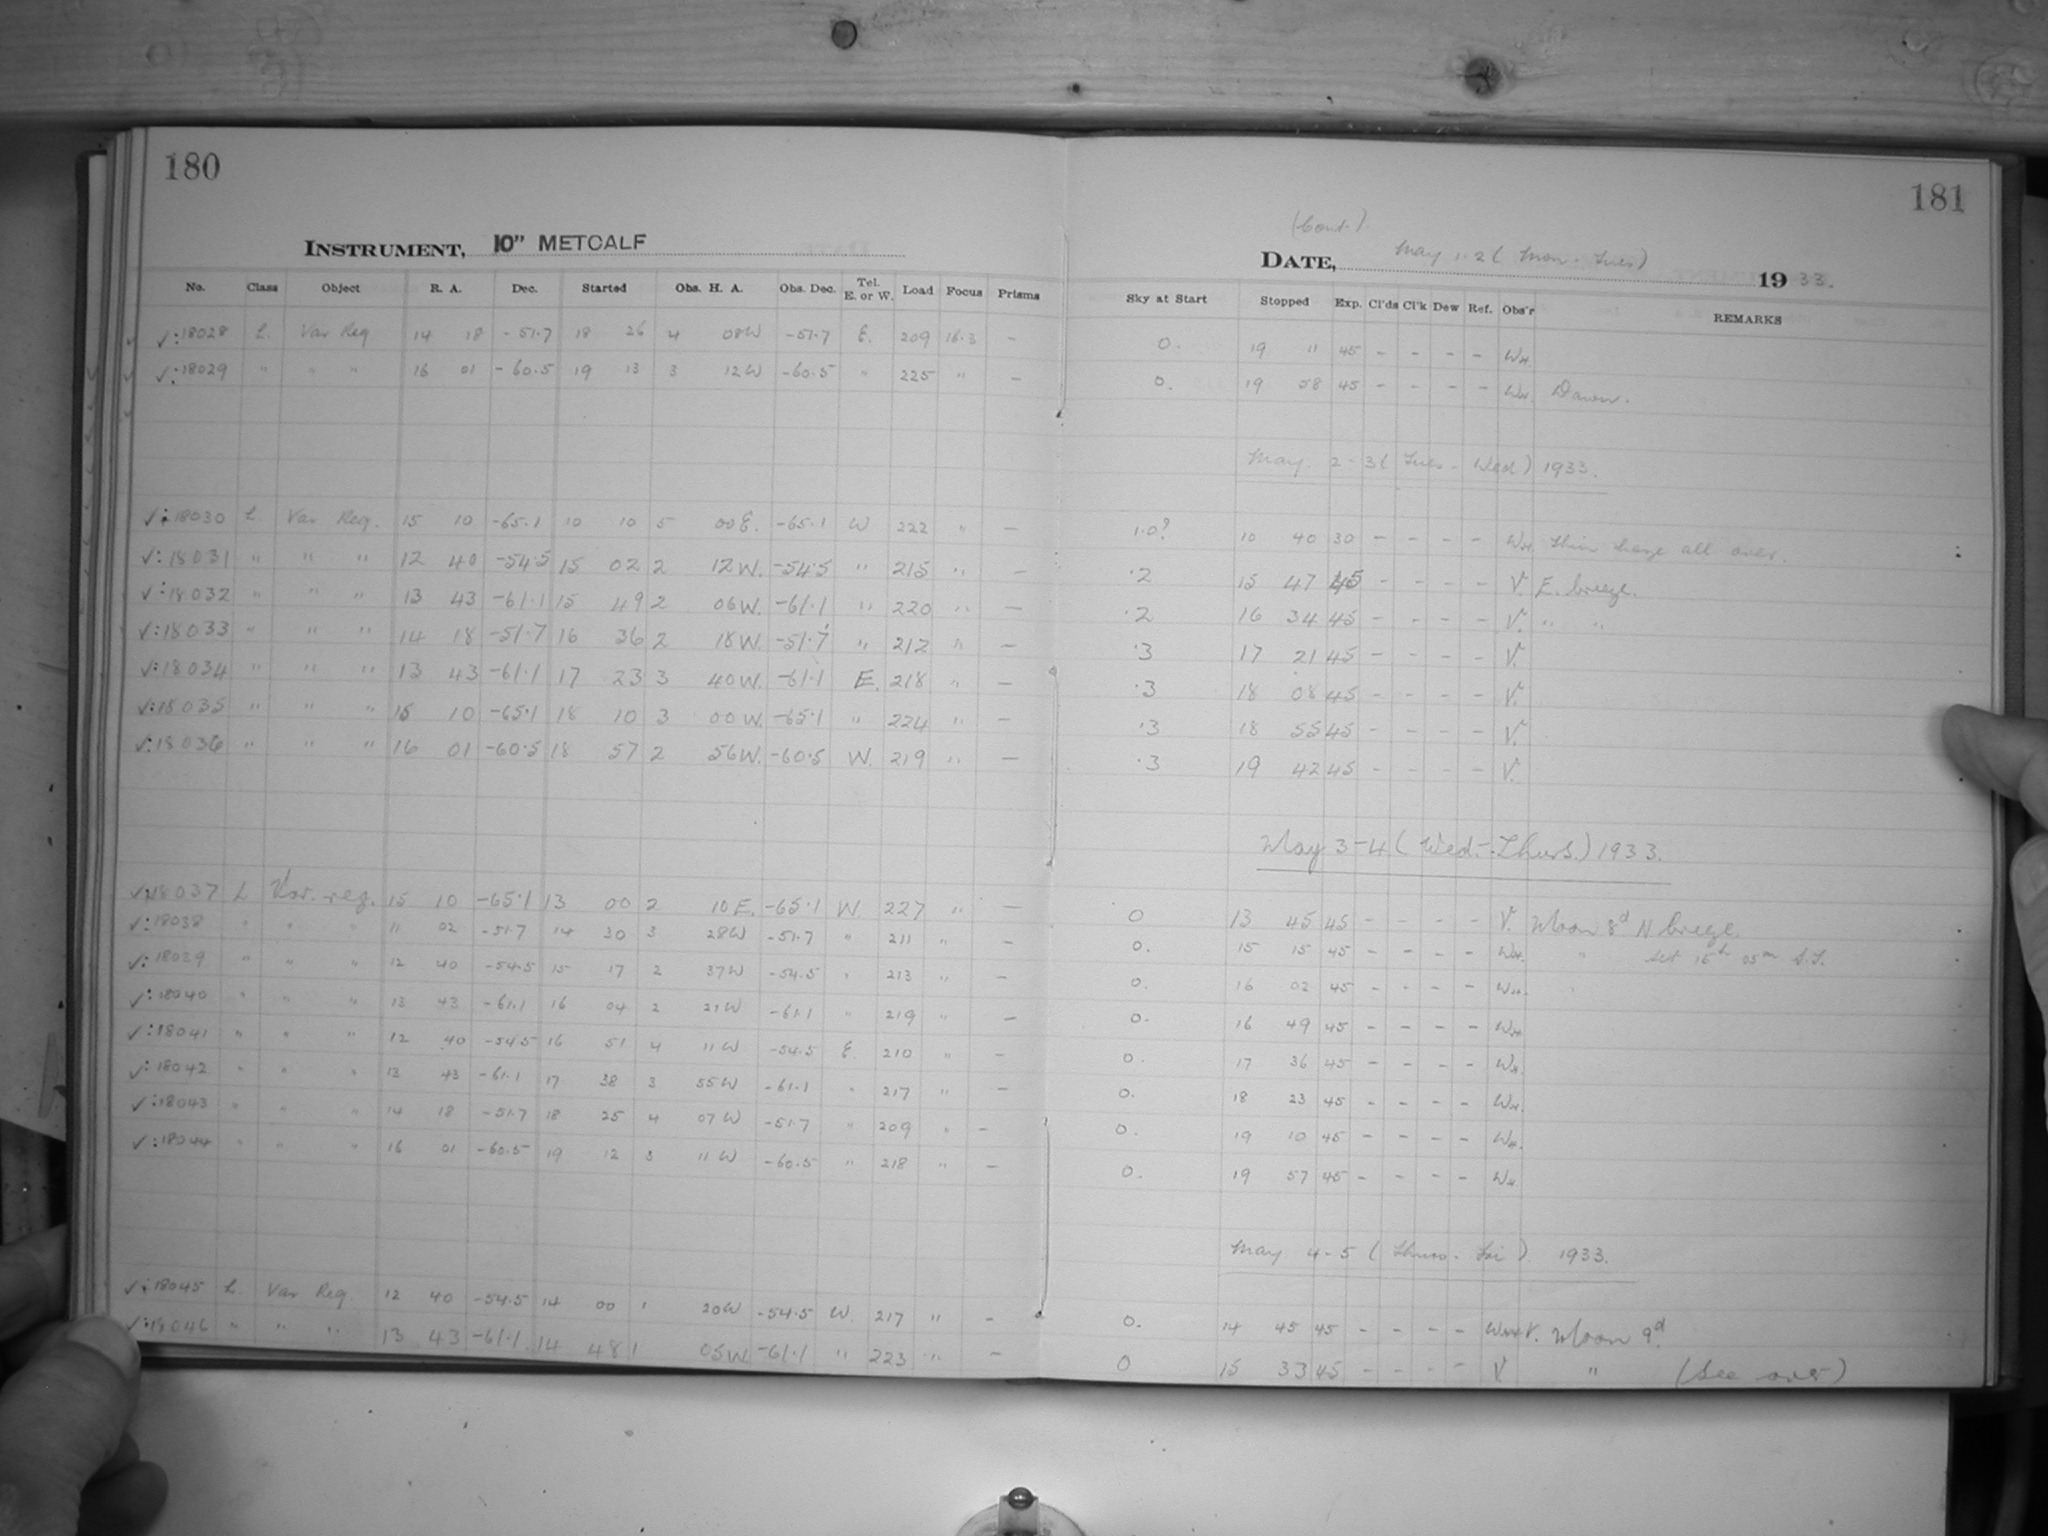 180
181
INSTRUMENT, 10" METCALF
(Cont.)
DATE, May 1-2 (Mon. Tues) 1933.
No. Class Object R. A. Dec. Started Obs. H. A. Obs. Dec. Tel. E. or W. Load Focus Prisms Sky at Start Stopped Exp. Cl'ds Cl'k Dew Ref. Obs'r REMARKS
√:18028 L. Var Reg 14 18 -51.7 18 26 4 08W -51.7 E. 209 16.3 - 0. 19 11 45 - - - - WH.
√:18029 " " " 16 01 -60.5 19 13 3 12W -60.5 " 225 " - 0. 19 58 45 - - - - WH. Dawn.
May 2-3 (Tues-Wed) 1933.
√:18030 L Var Reg. 15 10 -65.1 10 10 5 00E. -65.1 W 222 " - 1.0? 10 40 30 - - - - WH. Thin haze all over.
√:18031 " " " 12 40 -54.5 15 02 2 12W. -54.5 " 215 " - .2 15 47 45 - - - - V. E. breeze.
√:18032 " " " 13 43 -61.1 15 49 2 06W. -61.1 " 220 " - .2 16 34 45 - - - - V. " "
√:18033 " " " 14 18 -51.7 16 36 2 18W. -51.7 " 212 " - .3 17 21 45 - - - - V.
√:18034 " " " 13 43 -61.1 17 23 3 40W. -61.1 E. 218 " - .3 18 08 45 - - - - V.
√:18035 " " " 15 10 -65.1 18 10 3 00W. -65.1 " 224 " - .3 18 55 45 - - - - V.
√:18036 " " " 16 01 -60.5 18 57 2 56W. -60.5 W. 219 " - .3 19 42 45 - - - - V.
May 3-4 (Wed.-Thurs.) 1933.
√:18037 L Var. reg. 15 10 -65.1 13 00 2 10E. -65.1 W. 227 " - 0 13 45 45 - - - - V. Moon 8d N breeze.
√:18038 " " " 11 02 -51.7 14 30 3 28W -51.7 " 211 " - 0. 15 15 45 - - - - WH. " set 15h 05m S.T.
√:18039 " " " 12 40 -54.5 15 17 2 37W -54.5 " 213 " - 0. 16 02 45 - - - - WH.
√:18040 " " " 13 43 -61.1 16 04 2 21W -61.1 " 219 " - 0. 16 49 45 - - - - WH
√:18041 " " " 12 40 -54.5 16 51 4 11W -54.5 E. 210 " - 0. 17 36 45 - - - - WH.
√:18042 " " " 13 43 -61.1 17 38 3 55W -61.1 " 217 " - 0. 18 23 45 - - - - WH.
√:18043 " " " 14 18 -51.7 18 25 4 07W -51.7 " 209 " - 0. 19 10 45 - - - - WH.
√:18044 " " " 16 01 -60.5 19 12 3 11W -60.5 " 218 " - 0. 19 57 45 - - - - WH.
May 4-5 (Thurs. Fri) 1933.
√:18045 L. Var Reg. 12 40 -54.5 14 00 1 20W -54.5 W. 217 " - 0. 14 45 45 - - - - V. Moon 9d
√:18046 " " " 13 43 -61.1 14 48 1 05W -61.1 " 223 " - 0 15 33 45 - - - - V " (See over)